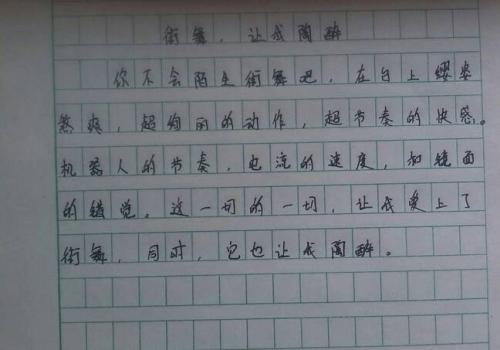 街舞，让我陶醉
你不会陌生街舞吧，在台上缨姿
煞爽，超绚丽的动作，超节奏的快感。
机器人的节奏，电流的速度，和镜面
的错觉。这一切的一切，让我爱上了
街舞，同时，它也让我陶醉。